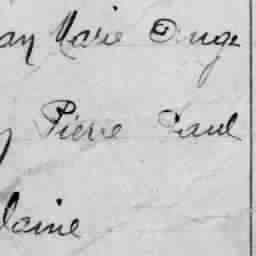 an Marie Ange
y Pierre Paul
laine